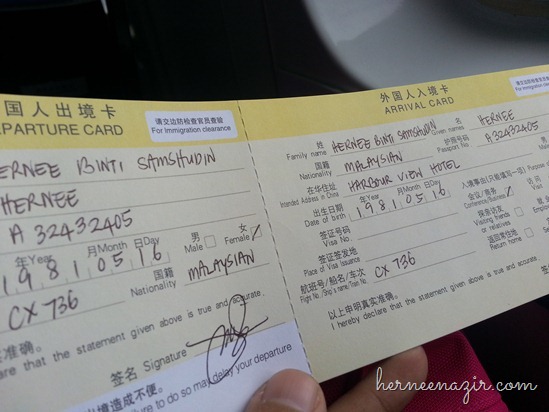 国人出境卡
DEPARTURE CARD
请交边防检查官员查验
For Immigration clearance
HERNEE BINTI SAMSHUDIN
HERNEE
A 32432405
年Year 月Month 日Day
198 05 16
男 Male 女 Female ✓
CX 736
国籍 Nationality MALAYSIAN
declare that the statement given above is true and accurate.
签名 Signature
造成不便。
to do so may delay your departure
外国人入境卡
ARRIVAL CARD
请交边防检查官员查验
For Immigration clearance
姓 Family name HERNEE BINTI SAMSHUDIN 名 Given names HERNEE
国籍 Nationality MALAYSIAN 护照号码 Passport No. A 32432405
在华住址 Intended Address in China HARBOUR VIEW HOTEL
出生日期 Date of birth 年Year 月Month 日Day 1981 05 16
入境事由(只能填写一项)
会议/商务 Conference/Business ✓ 访问 Visit
签证号码 Visa No.
探亲访友 Visiting friends or relatives
签证签发地 Place of Visa Issuance
返回常住地 Return home
航班号/船名/车次 Flight No./Ship's name/Train No. CX 736
以上申明真实准确。
I hereby declare that the statement given above is true and accurate.
herneenazir.com